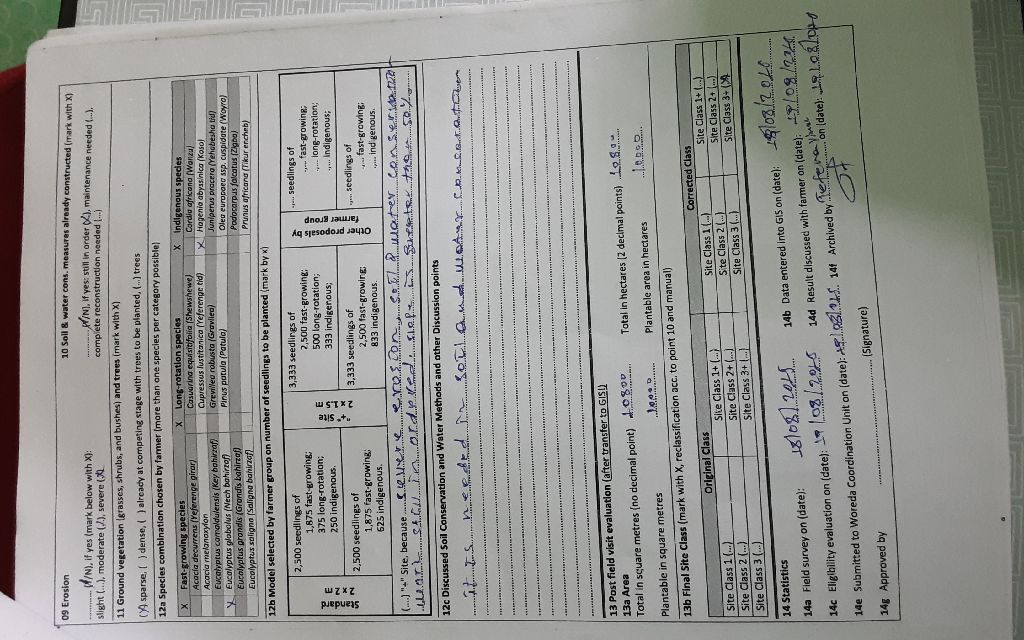 09 Erosion
(Y/N), if yes (mark below with X):
slight (...), moderate (...), severe (X)
10 Soil & water cons. measures already constructed (mark with X)
(Y/N), if yes: still in order (X), maintenance needed (...),
complete reconstruction needed (...)
11 Ground vegetation (grasses, shrubs, and bushes) and trees (mark with X)
(X) sparse, ( ) dense, ( ) already at competing stage with trees to be planted, (...) trees
12a Species combination chosen by farmer (more than one species per category possible)
X Fast-growing species X Long-rotation species X Indigenous species
Acacia decurrens (Yeferenge girar) Casuarina equisitifolia (Shewshewe) Cordia africana (Wanza)
Acacia melanoxylon Cupressus lusitanica (Yeferenge tid) X Hagenia abyssinica (Koso)
Eucalyptus camaldulensis (Key bahirzaf) Grevillea robusta (Gravilea) Juniperus procera (Yehabesha tid)
X Eucalyptus globulus (Nech bahirzaf) Pinus patula (Patula) Olea europaea ssp. cuspidata (Woyra)
Eucalyptus grandis (Grandis bahirzaf) Podocarpus falcatus (Zigba)
Eucalyptus saligna (Saligna bahirzaf) Prunus africana (Tikur encheb)
12b Model selected by farmer group on number of seedlings to be planted (mark by X)
Standard
2 x 2 m
2,500 seedlings of
1,875 fast-growing;
375 long-rotation;
250 indigenous.
2,500 seedlings of
1,875 fast-growing;
625 indigenous.
"+" Site
2 x 1.5 m
3,333 seedlings of
2,500 fast-growing;
500 long-rotation;
333 indigenous;
3,333 seedlings of
2,500 fast-growing;
833 indigenous.
Other proposals by
farmer group
.... seedlings of
.... fast-growing;
.... long-rotation;
.... indigenous;
.... seedlings of
.... fast-growing;
.... indigenous.
(...) "+" Site, because severe erosion, soil & water conservation
still in order, slope is greater than 50%
12c Discussed Soil Conservation and Water Methods and other Discussion points
it is needed in soil and water conservation
13 Post field visit evaluation (after transfer to GIS!)
13a Area
Total in square metres (no decimal point) 10800 Total in hectares (2 decimal points) 1.080
Plantable in square metres 10000 Plantable area in hectares 1.0000
13b Final Site Class (mark with X, reclassification acc. to point 10 and manual)
Original Class Corrected Class
Site Class 1 (...) Site Class 1+ (...) Site Class 1 (...) Site Class 1+ (...)
Site Class 2 (...) Site Class 2+ (...) Site Class 2 (...) Site Class 2+ (...)
Site Class 3 (...) Site Class 3+ (...) Site Class 3 (...) Site Class 3+ (X)
14 Statistics
14a Field survey on (date): 18/08/2025 14b Data entered into GIS on (date):
14c Eligibility evaluation on (date): 19/08/2025 14d Result discussed with farmer on (date):
14e Submitted to Woreda Coordination Unit on (date): 14f Archived by on (date):
14g Approved by (Signature)